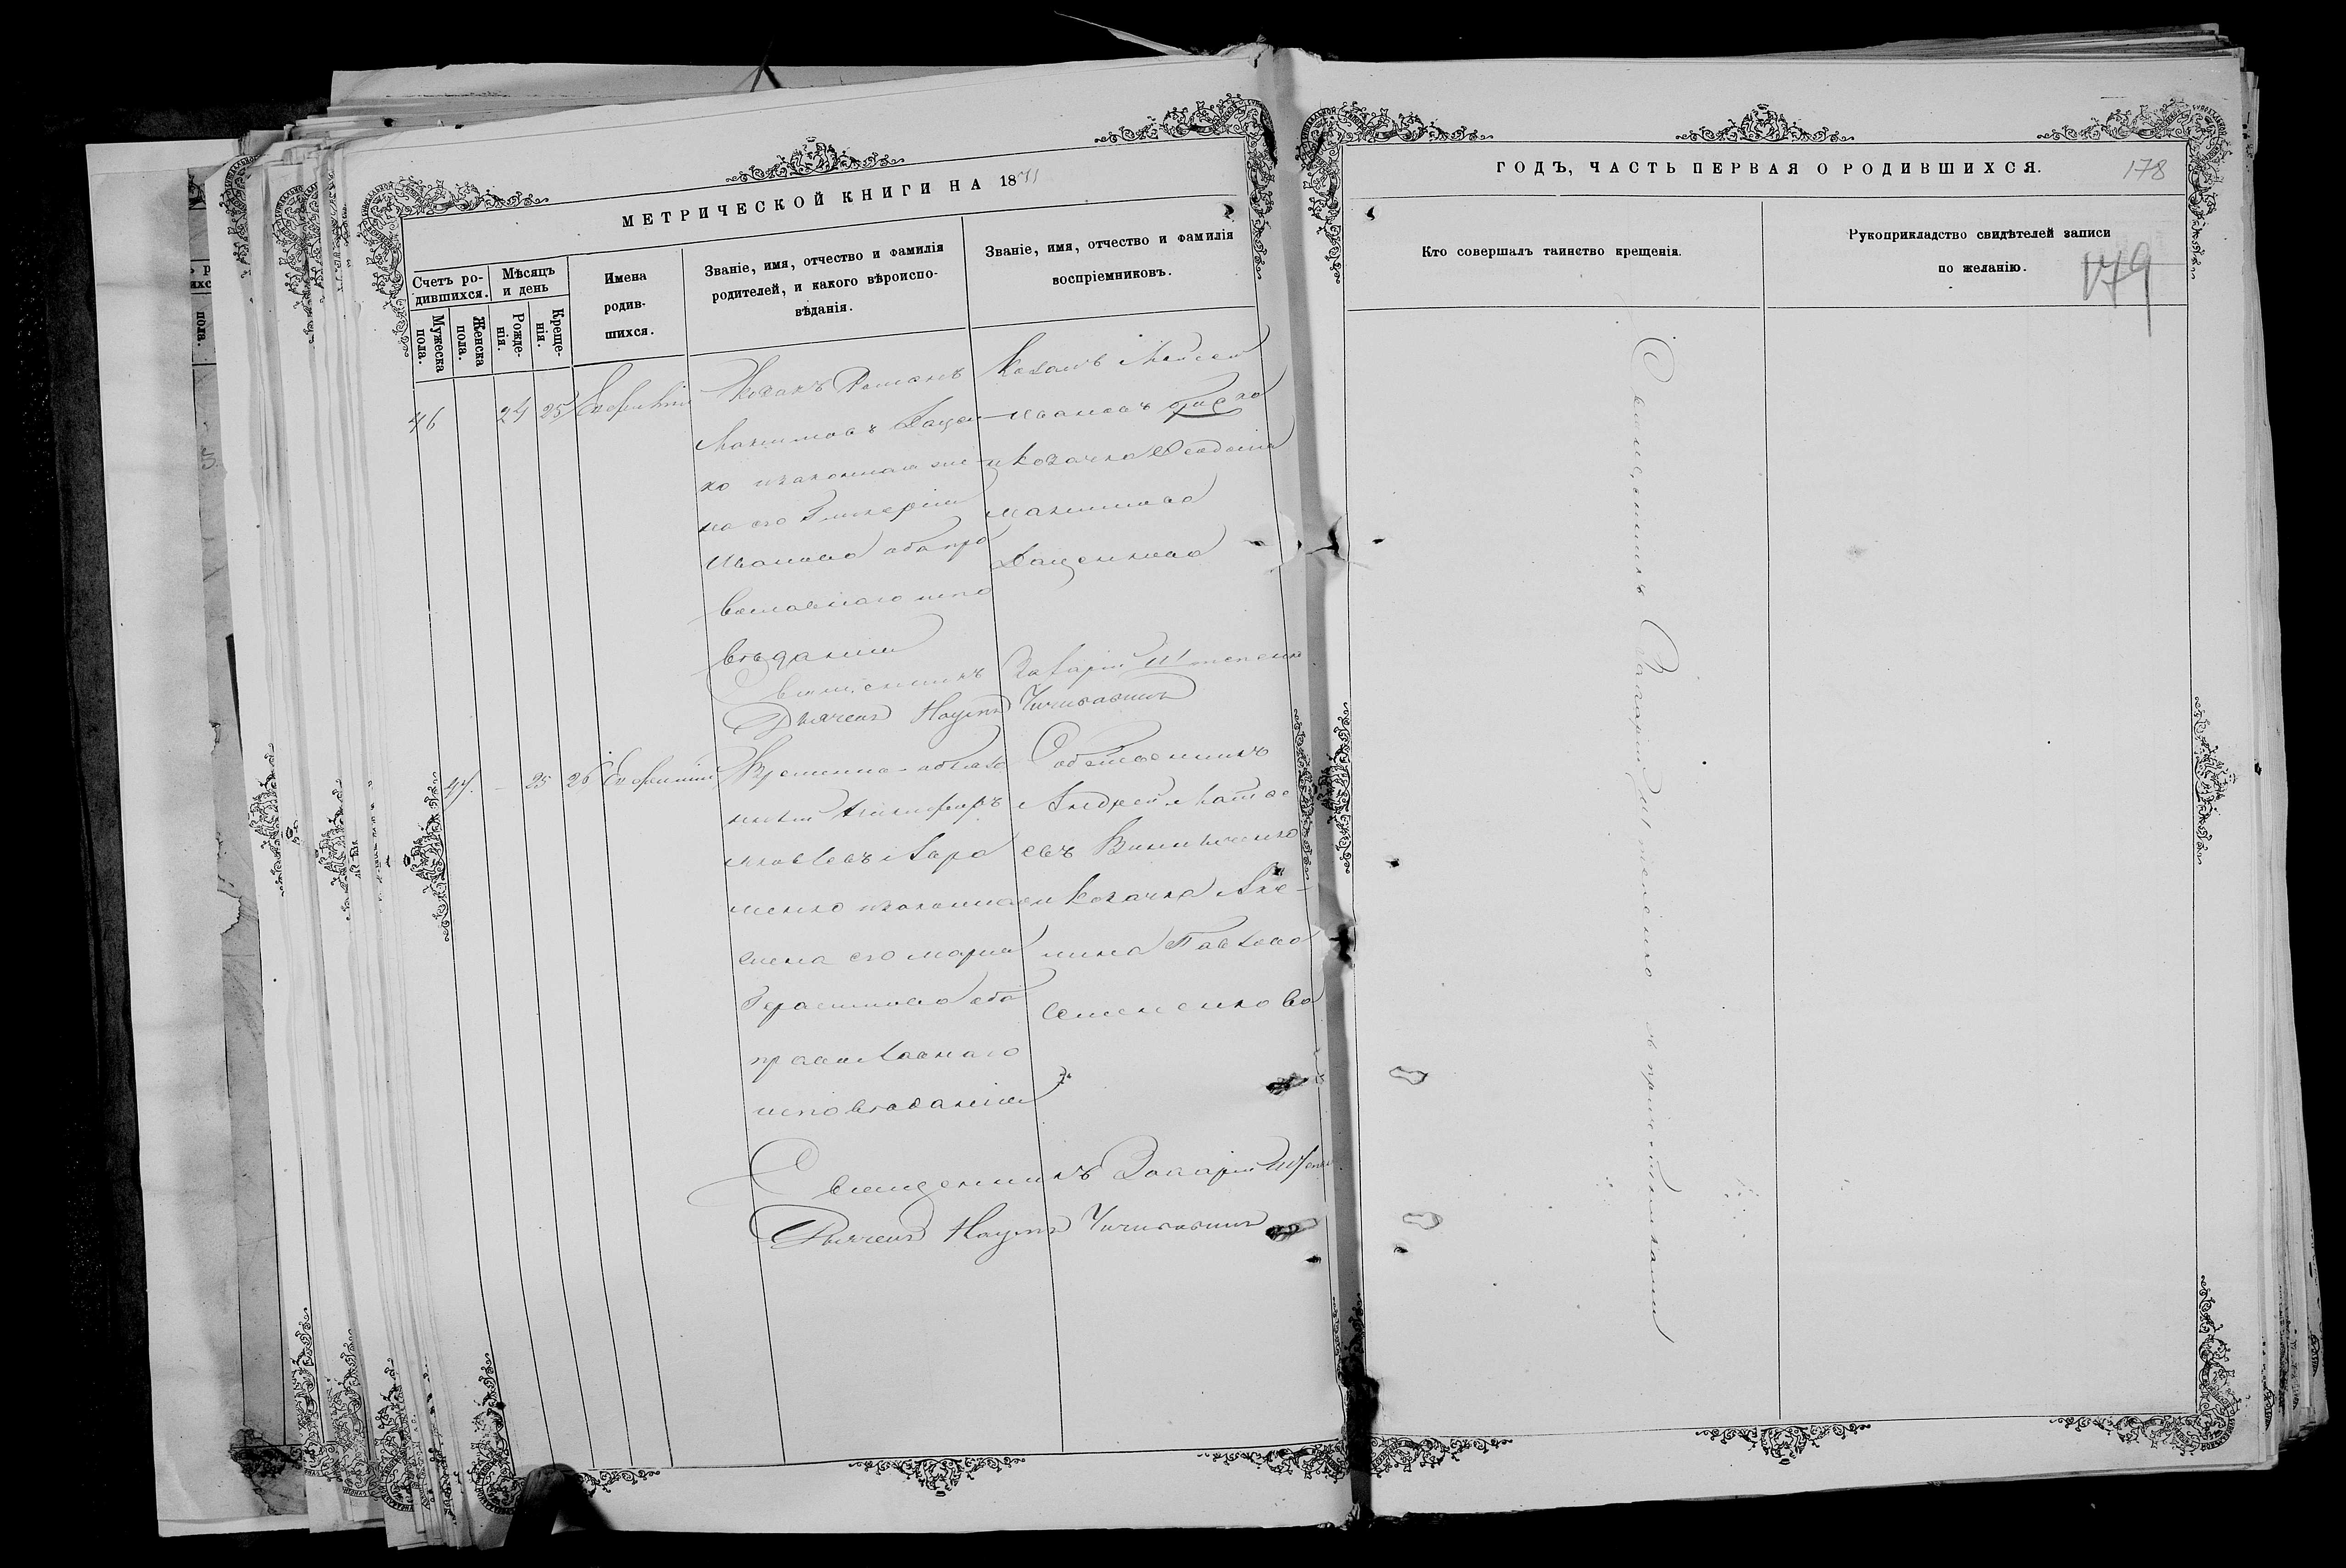 МЕТРИЧЕСКОЙ КНИГИ НА 1871
Счетъ ро-
дившихся.
Мужеска
пола.
Женска
пола.
Мѣсяцъ
и день
Рожде-
нія.
Креще-
нія.
Имена
родив-
шихся.
Званіе, имя, отчество и фамилія
родителей, и какого вѣроиспо-
вѣданія.
Званіе, имя, отчество и фамилія
воспріемниковъ.
46
24
25
Евфимій
Козакъ Романъ
Максимовъ Дацен
ко изаконная же
на его Гликерія
Иванова оба пра
вославнаго испо
вѣданія
Козакъ Мойсей
Ивановъ
и Козачка Феодосія
Максимова
Даценкова
Священникъ Захарій Штепенко
Дьячекъ Наумъ
47.
25
26
Евфимія
Временно-обяза
нный Никифоръ
Яковлевъ
менко изаконная
жена его Марія
Герасимова оба
православнаго
исповѣданія
Собственникъ
Андрей Матвѣ
евъ Винниченко
и Козачка Аке-
лина Павлова
Семененкова
Священникъ Захарій
Дьячекъ Наумъ
ГОДЪ, ЧАСТЬ ПЕРВАЯ О РОДИВШИХСЯ.
178
179
Кто совершалъ таинство крещенія.
Рукоприкладство свидѣтелей записи
по желанію.
Священникъ Захарій Штепенко съ причетниками